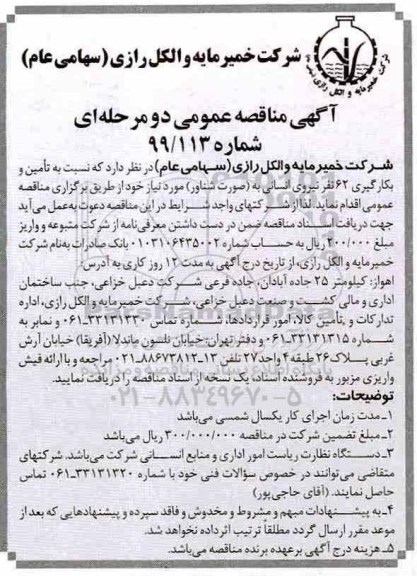 شرکت خمیر مایه و الکل رازی (سهامی عام)
شرکت خمیر مایه و الکل رازی
آگهی مناقصه عمومی دو مرحله‌ای
شماره ۹۹/۱۱۳
شرکت خمیر مایه و الکل رازی (سهامی عام) در نظر دارد که نسبت به تأمین و
بکارگیری ۶۲ نفر نیروی انسانی به (صورت شناور) مورد نیاز خود از طریق برگزاری مناقصه
عمومی اقدام نماید. لذا از شرکتهای واجد شرایط در این مناقصه دعوت به‌عمل می‌آید
جهت دریافت اسناد مناقصه ضمن در دست داشتن معرفی‌نامه از شرکت متبوعه و واریز
مبلغ ۲۰۰/۰۰۰ ریال به حساب شماره ۰۱۰۳۱۰۶۴۳۵۰۰۲ بانک صادرات به‌نام شرکت
خمیر مایه و الکل رازی، از تاریخ درج آگهی به مدت ۱۲ روز کاری به آدرس:
اهواز: کیلومتر ۲۵ جاده آبادان، جاده فرعی شرکت دعبل خزاعی، جنب ساختمان
اداری و مالی کشت و صنعت دعبل خزاعی، شرکت خمیر مایه و الکل رازی، اداره
تدارکات و تأمین کالا، امور قراردادها، شماره تماس ۳۳۱۳۱۳۳۰-۰۶۱ و نمابر به
شماره ۳۳۱۳۱۳۱۵-۰۶۱ و دفتر تهران-خیابان نلسون ماندلا (آفریقا) خیابان آرش
غربی پلاک ۲۶ طبقه ۴ واحد ۲۷ تلفن ۱۳-۸۸۶۷۳۸۱۲-۰۲۱ مراجعه و با ارائه فیش
واریزی مزبور به فروشنده اسناد، یک نسخه از اسناد مناقصه را دریافت نمایید.
توضیحات:
۱ـ مدت زمان اجرای کار یکسال شمسی می‌باشد
۲ـ مبلغ تضمین شرکت در مناقصه ۳۰۰/۰۰۰/۰۰۰ ریال می‌باشد
۳ـ دستگاه نظارت ریاست امور اداری و منابع انسانی شرکت می‌باشد. شرکتهای
متقاضی می‌توانند در خصوص سؤالات فنی خود با شماره ۳۳۱۳۱۳۲۰-۰۶۱ تماس
حاصل نمایند. (آقای حاجی‌پور)
۴ـ به پیشنهادات مبهم و مشروط و مخدوش و فاقد سپرده و پیشنهادهایی که بعد از
موعد مقرر ارسال گردد مطلقاً ترتیب اثر داده نخواهد شد.
۵ـ هزینه درج آگهی بر عهده برنده مناقصه می‌باشد.
۰۲۱-۸۸۳۴۹۶۷۰-۵